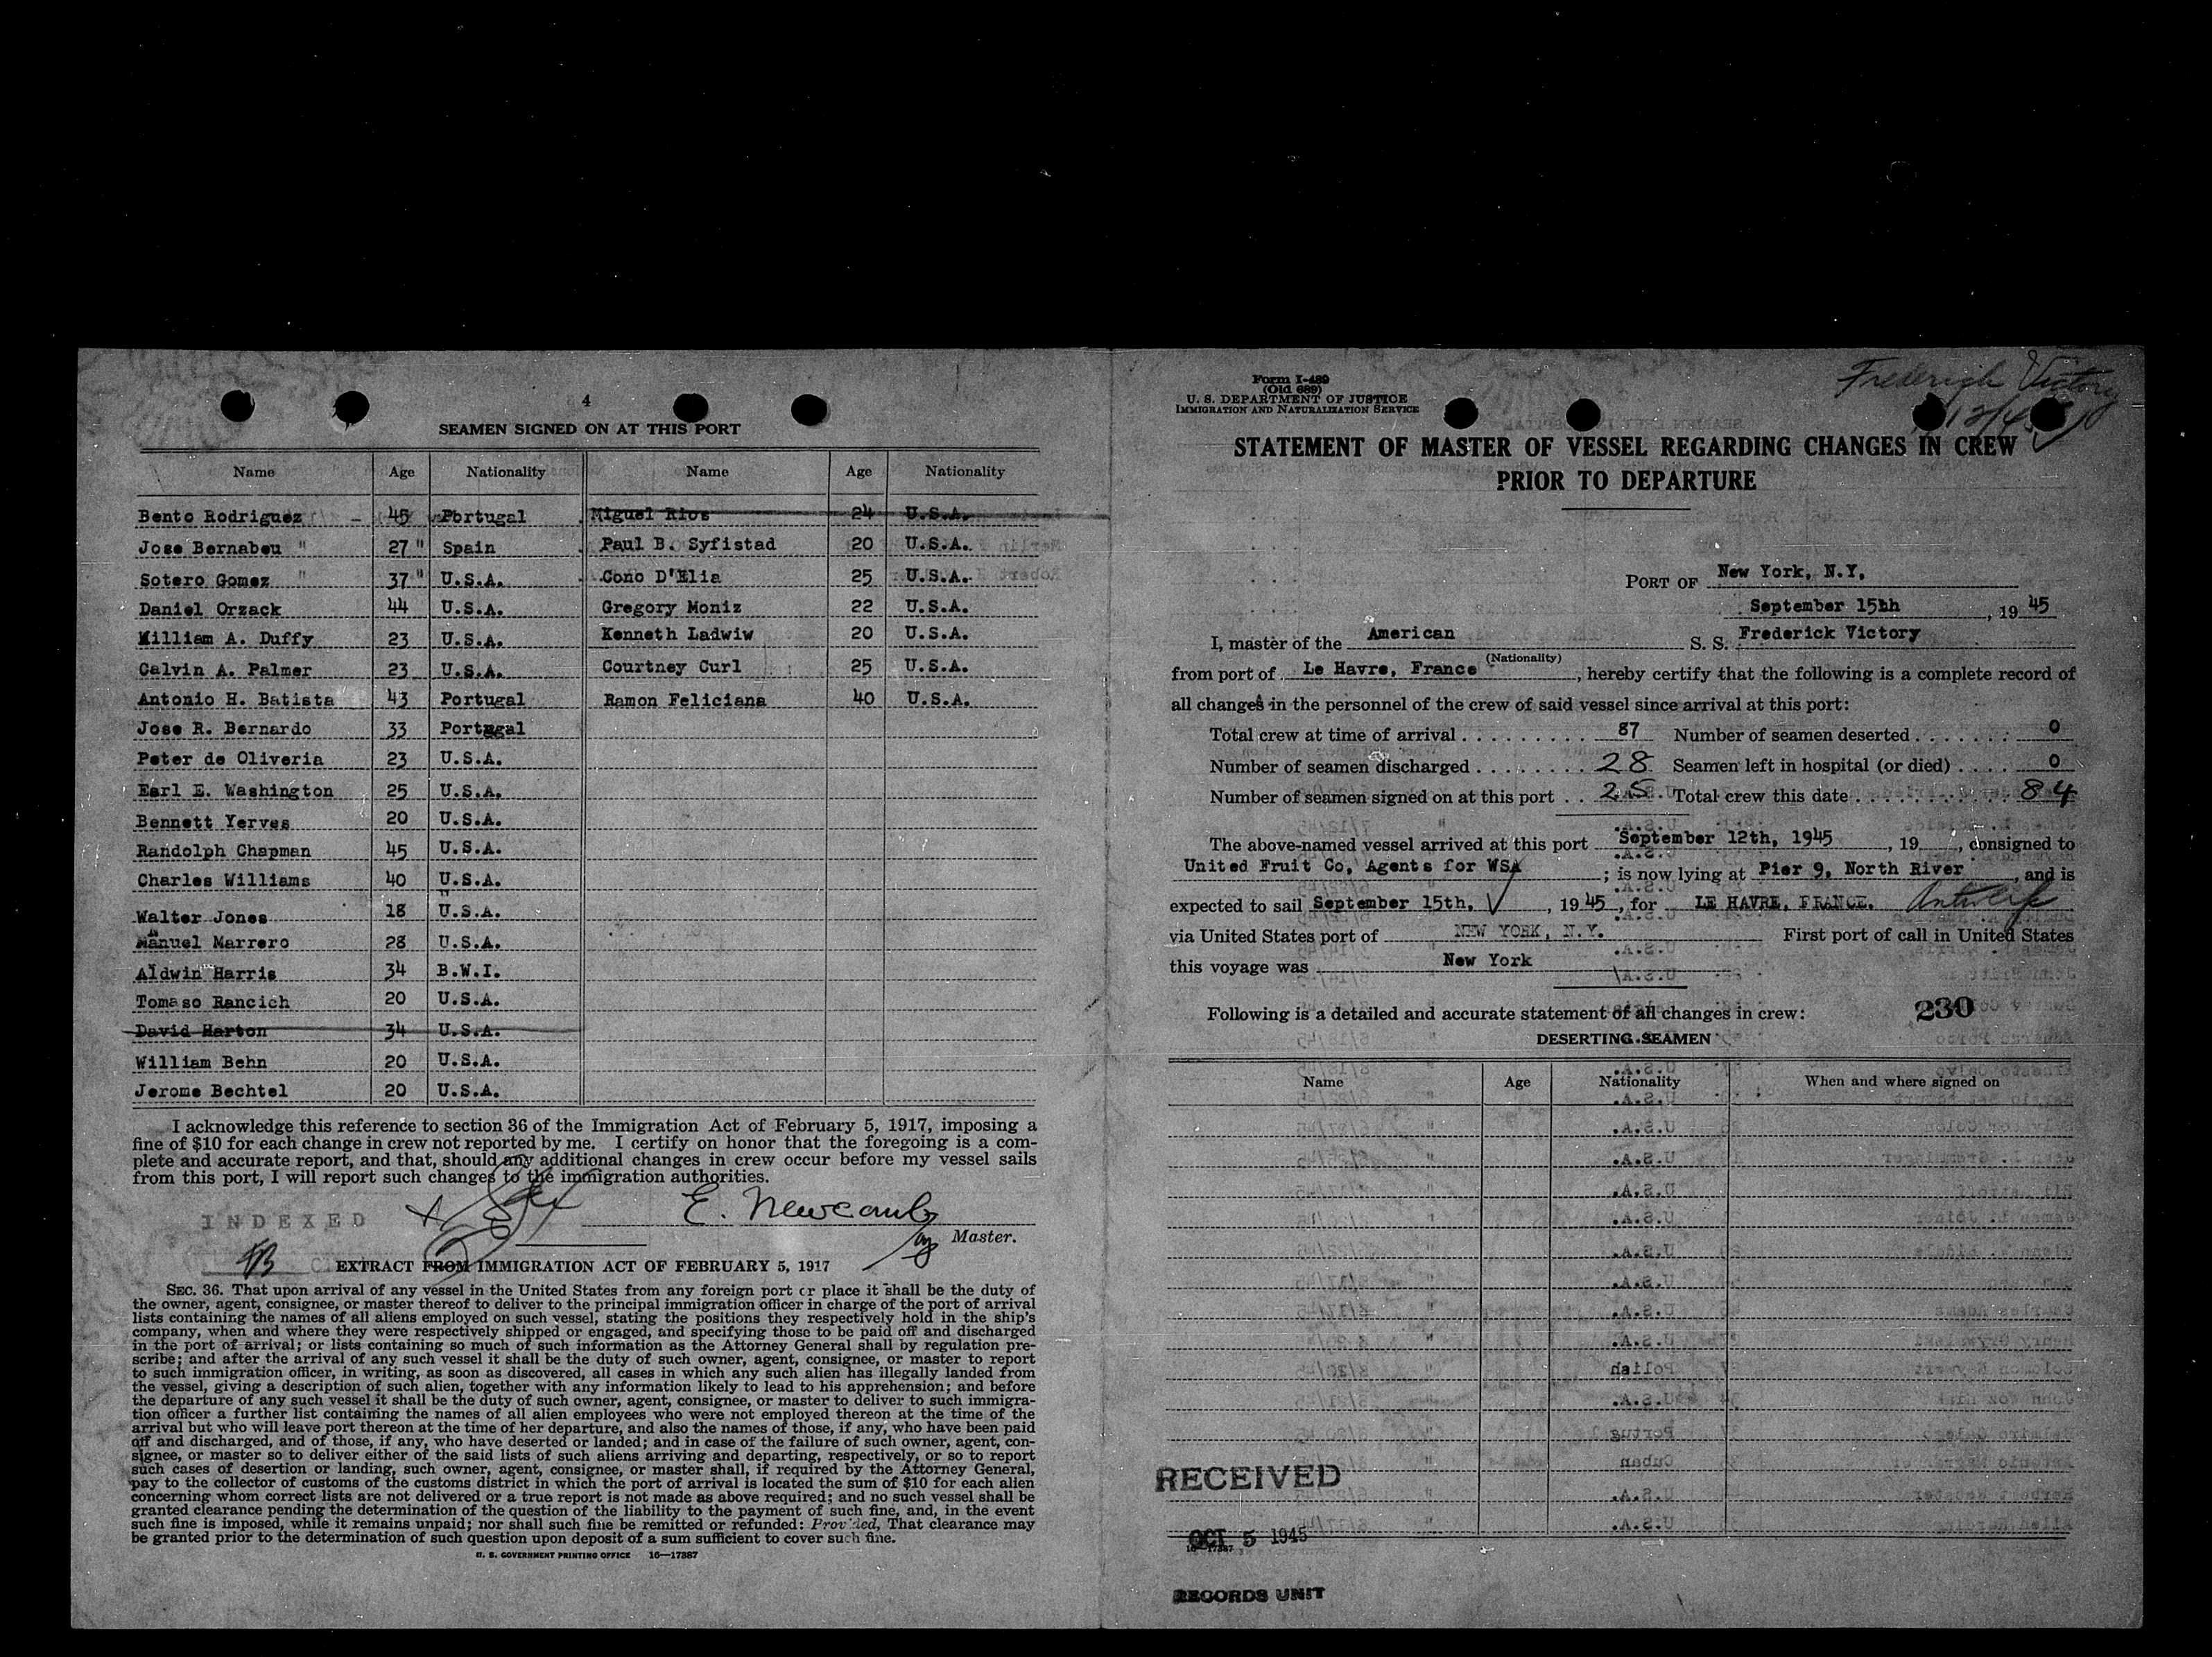 4
SEAMEN SIGNED ON AT THIS PORT
Name Age Nationality Name Age Nationality
Bento Rodriguez 45 Portugal Miguel Rios 24 U.S.A.
Jose Bernabeu " 27 " Spain Paul B. Syfistad 20 U.S.A.
Sotero Gomez " 37 " U.S.A. Cono D'Elia 25 U.S.A.
Daniel Orzack 44 U.S.A. Gregory Moniz 22 U.S.A.
William A. Duffy 23 U.S.A. Kenneth Ladwiw 20 U.S.A.
Calvin A. Palmer 23 U.S.A. Courtney Curl 25 U.S.A.
Antonio H. Batista 43 Portugal Ramon Feliciana 40 U.S.A.
Jose R. Bernardo 33 Portugal
Peter de Oliveria 23 U.S.A.
Earl E. Washington 25 U.S.A.
Bennett Yerves 20 U.S.A.
Randolph Chapman 45 U.S.A.
Charles Williams 40 U.S.A.
Walter Jones 18 U.S.A.
Manuel Marrero 28 U.S.A.
Aldwin Harris 34 B.W.I.
Tomaso Rancich 20 U.S.A.
David Harton 34 U.S.A.
William Behn 20 U.S.A.
Jerome Bechtel 20 U.S.A.
I acknowledge this reference to section 36 of the Immigration Act of February 5, 1917, imposing a
fine of $10 for each change in crew not reported by me. I certify on honor that the foregoing is a com-
plete and accurate report, and that, should any additional changes in crew occur before my vessel sails
from this port, I will report such changes to the immigration authorities.
INDEXED
E. Newcomb
Master.
EXTRACT FROM IMMIGRATION ACT OF FEBRUARY 5, 1917
SEC. 36. That upon arrival of any vessel in the United States from any foreign port or place it shall be the duty of
the owner, agent, consignee, or master thereof to deliver to the principal immigration officer in charge of the port of arrival
lists containing the names of all aliens employed on such vessel, stating the positions they respectively hold in the ship's
company, when and where they were respectively shipped or engaged, and specifying those to be paid off and discharged
in the port of arrival; or lists containing so much of such information as the Attorney General shall by regulation pre-
scribe; and after the arrival of any such vessel it shall be the duty of such owner, agent, consignee, or master to report
to such immigration officer, in writing, as soon as discovered, all cases in which any such alien has illegally landed from
the vessel, giving a description of such alien, together with any information likely to lead to his apprehension; and before
the departure of any such vessel it shall be the duty of such owner, agent, consignee, or master to deliver to such immigra-
tion officer a further list containing the names of all alien employees who were not employed thereon at the time of the
arrival but who will leave port thereon at the time of her departure, and also the names of those, if any, who have been paid
off and discharged, and of those, if any, who have deserted or landed; and in case of the failure of such owner, agent, con-
signee, or master so to deliver either of the said lists of such aliens arriving and departing, respectively, or so to report
such cases of desertion or landing, such owner, agent, consignee, or master shall, if required by the Attorney General,
pay to the collector of customs of the customs district in which the port of arrival is located the sum of $10 for each alien
concerning whom correct lists are not delivered or a true report is not made as above required; and no such vessel shall be
granted clearance pending the determination of the question of the liability to the payment of such fine, and, in the event
such fine is imposed, while it remains unpaid; nor shall such fine be remitted or refunded: Provided, That clearance may
be granted prior to the determination of such question upon deposit of a sum sufficient to cover such fine.
U. S. GOVERNMENT PRINTING OFFICE 16—17387
Form I-489
(Old 689)
U. S. DEPARTMENT OF JUSTICE
IMMIGRATION AND NATURALIZATION SERVICE
Frederick Victory
STATEMENT OF MASTER OF VESSEL REGARDING CHANGES IN CREW
PRIOR TO DEPARTURE
PORT OF New York, N.Y.
September 15th, 1945
I, master of the American S. S. Frederick Victory
(Nationality)
from port of Le Havre, France, hereby certify that the following is a complete record of
all changes in the personnel of the crew of said vessel since arrival at this port:
Total crew at time of arrival 87 Number of seamen deserted 0
Number of seamen discharged 28 Seamen left in hospital (or died) 0
Number of seamen signed on at this port 25 Total crew this date 84
The above-named vessel arrived at this port September 12th, 1945, 19 , consigned to
United Fruit Co, Agents for WSA ; is now lying at Pier 9, North River, and is
expected to sail September 15th, 1945, for LE HAVRE, FRANCE. Antwerp
via United States port of NEW YORK, N.Y. First port of call in United States
this voyage was New York
Following is a detailed and accurate statement of all changes in crew: 230
DESERTING SEAMEN
Name Age Nationality When and where signed on
RECEIVED
OCT 5 1945
16—17387
RECORDS UNIT